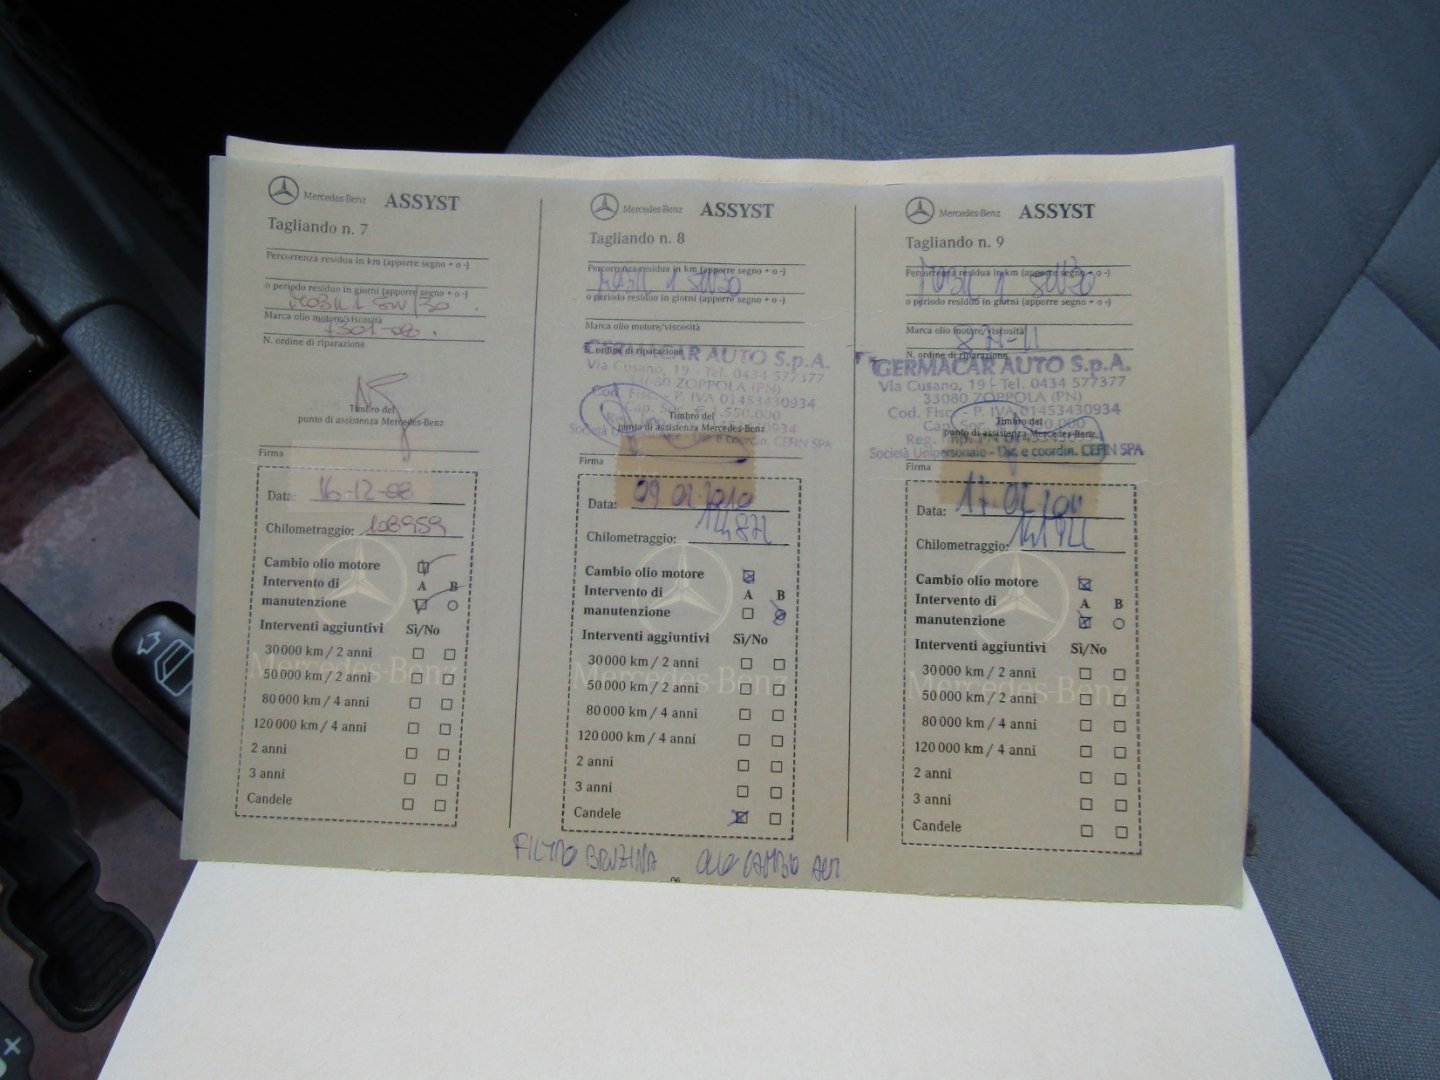 Mercedes-Benz ASSYST
Tagliando n. 7
Percorrenza residua in km (apporre segno + o -)
o periodo residuo in giorni (apporre segno + o -)
MOBIL 1 5W/30
Marca olio motore/viscosità
N. ordine di riparazione
Timbro del
punto di assistenza Mercedes-Benz
Firma
Data: 16-12-08
Chilometraggio: 108959
Cambio olio motore
Intervento di A B
manutenzione
Interventi aggiuntivi Sì/No
30 000 km / 2 anni
50 000 km / 2 anni
80 000 km / 4 anni
120 000 km / 4 anni
2 anni
3 anni
Candele
Mercedes-Benz
Mercedes-Benz ASSYST
Tagliando n. 8
Percorrenza residua in km (apporre segno + o -)
MOBIL 1 5W30
o periodo residuo in giorni (apporre segno + o -)
Marca olio motore/viscosità
N. ordine di riparazione
GERMACAR AUTO S.p.A.
Via Cusano, 19 - Tel. 0434 577377
33080 ZOPPOLA (PN)
Cod. Fisc. - P. IVA 01453430934
Timbro del
punto di assistenza Mercedes-Benz
Dir. e coordin. CEFIN SPA
Firma
Data: 09 02 2010
Chilometraggio:
Cambio olio motore
Intervento di A B
manutenzione
Interventi aggiuntivi Sì/No
30 000 km / 2 anni
50 000 km / 2 anni
80 000 km / 4 anni
120 000 km / 4 anni
2 anni
3 anni
Candele
Mercedes-Benz
FILTRO BENZINA OLIO CAMBIO AUT
06
Mercedes-Benz ASSYST
Tagliando n. 9
Percorrenza residua in km (apporre segno + o -)
MOBIL 1 5W30
o periodo residuo in giorni (apporre segno + o -)
Marca olio motore/viscosità
N. ordine di riparazione
GERMACAR AUTO S.p.A.
Via Cusano, 19 - Tel. 0434 577377
33080 ZOPPOLA (PN)
Cod. Fisc. - P. IVA 01453430934
Timbro del
punto di assistenza Mercedes-Benz
Società Unipersonale - Dir. e coordin. CEFIN SPA
Firma
Data:
Chilometraggio:
Cambio olio motore
Intervento di A B
manutenzione
Interventi aggiuntivi Sì/No
30 000 km / 2 anni
50 000 km / 2 anni
80 000 km / 4 anni
120 000 km / 4 anni
2 anni
3 anni
Candele
Mercedes-Benz